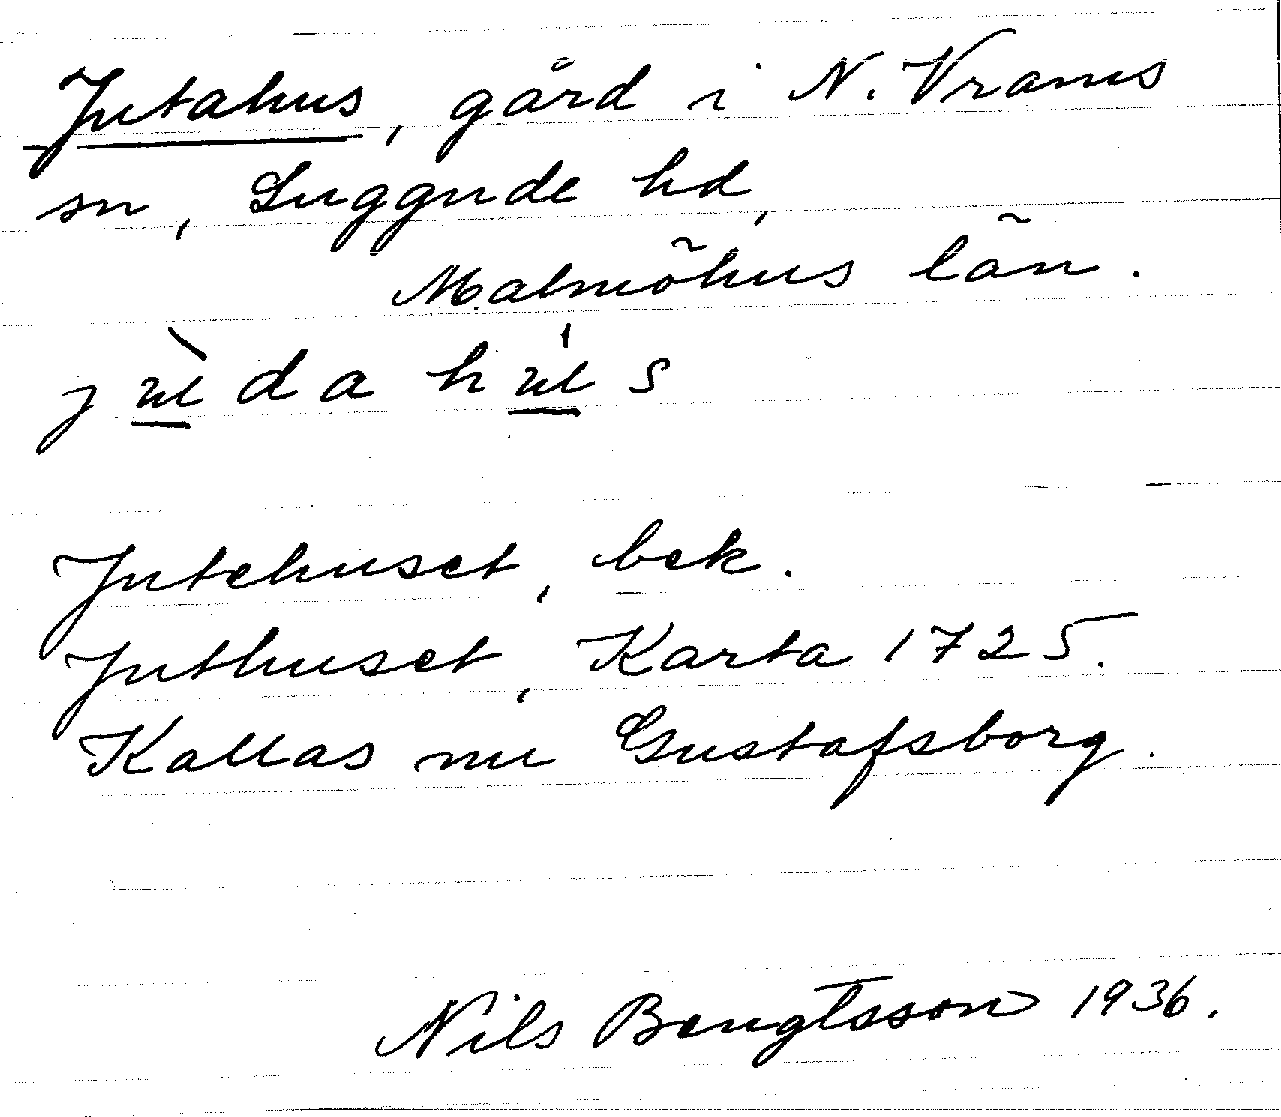 Jutahus, gård i N. Vrams
sn, Luggude hd,
Malmöhus län.
jùdahús
Jutehuset, bek.
Juthuset, Karta 1725.
Kallas nu Gustafsborg.
Nils Bengtsson 1936.